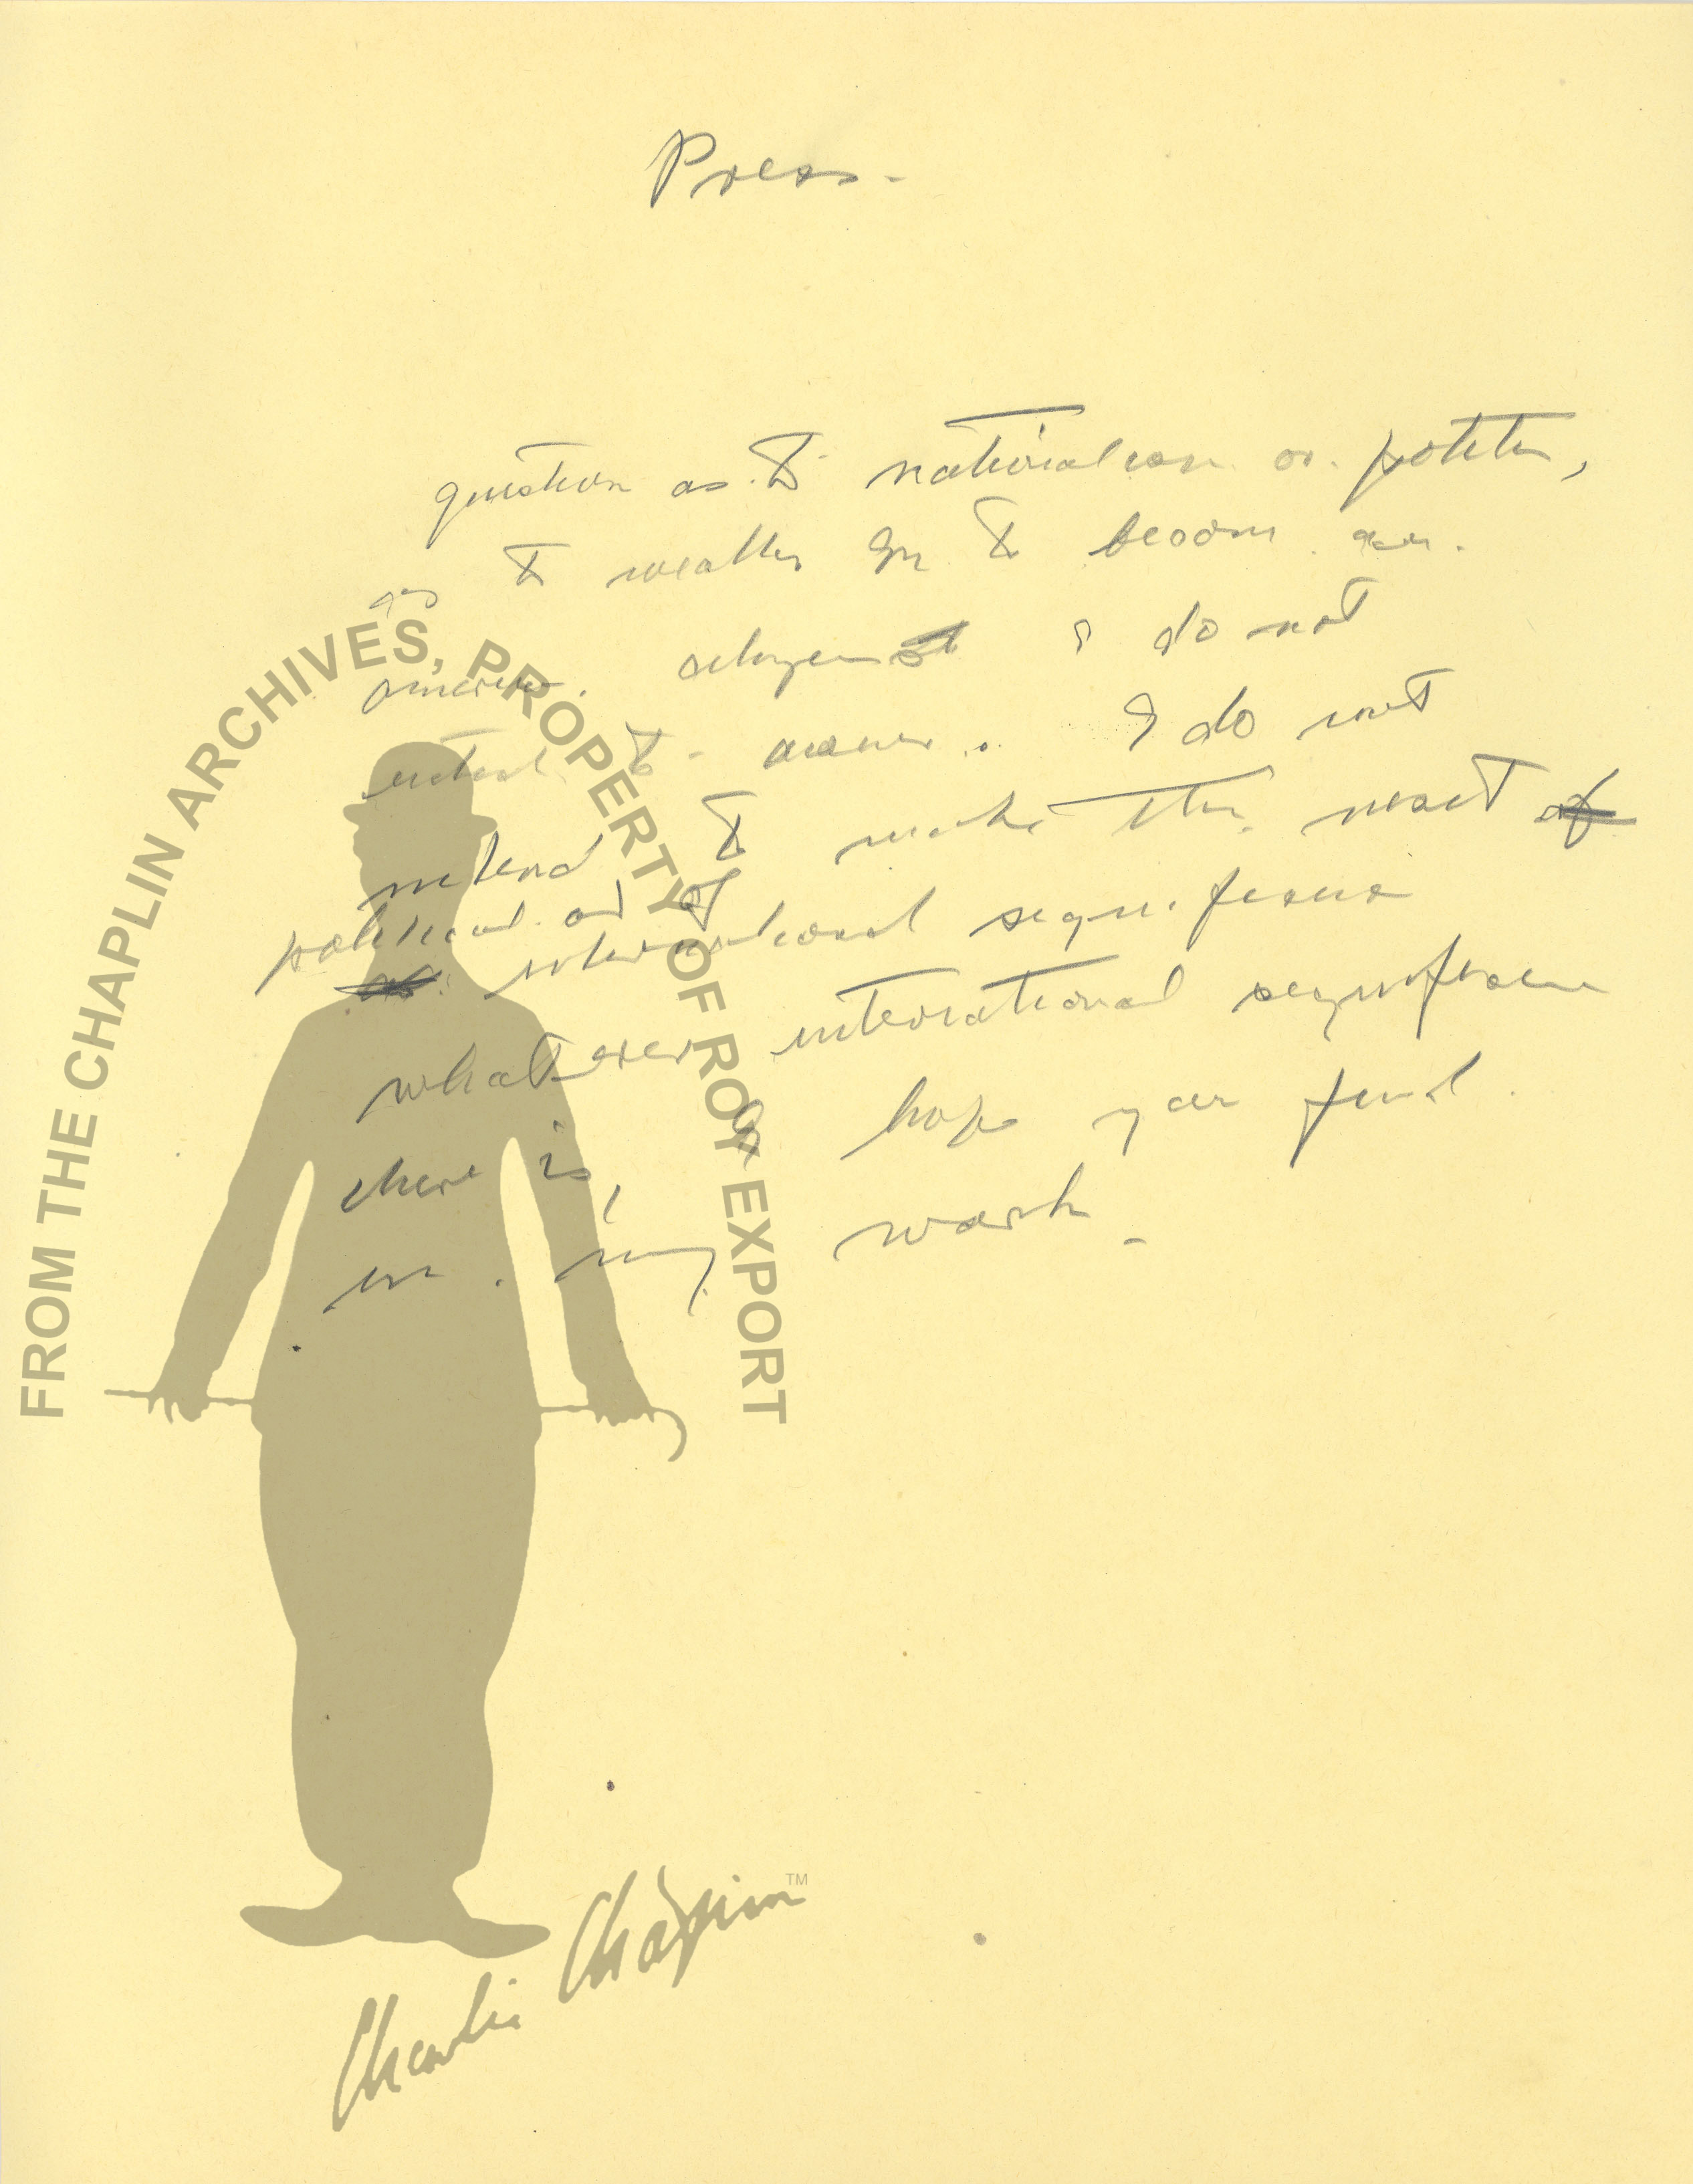 Press -
question as to nationalism or politics,
as to weather I'm to become an.
American. citizen I do not
intend to answer. I do not
intend to make this visit of
political and of
international significance
whatever international significance
there is, I hope you find.
in. my work.
FROM THE CHAPLIN ARCHIVES, PROPERTY OF ROY EXPORT
Charlie Chaplin TM